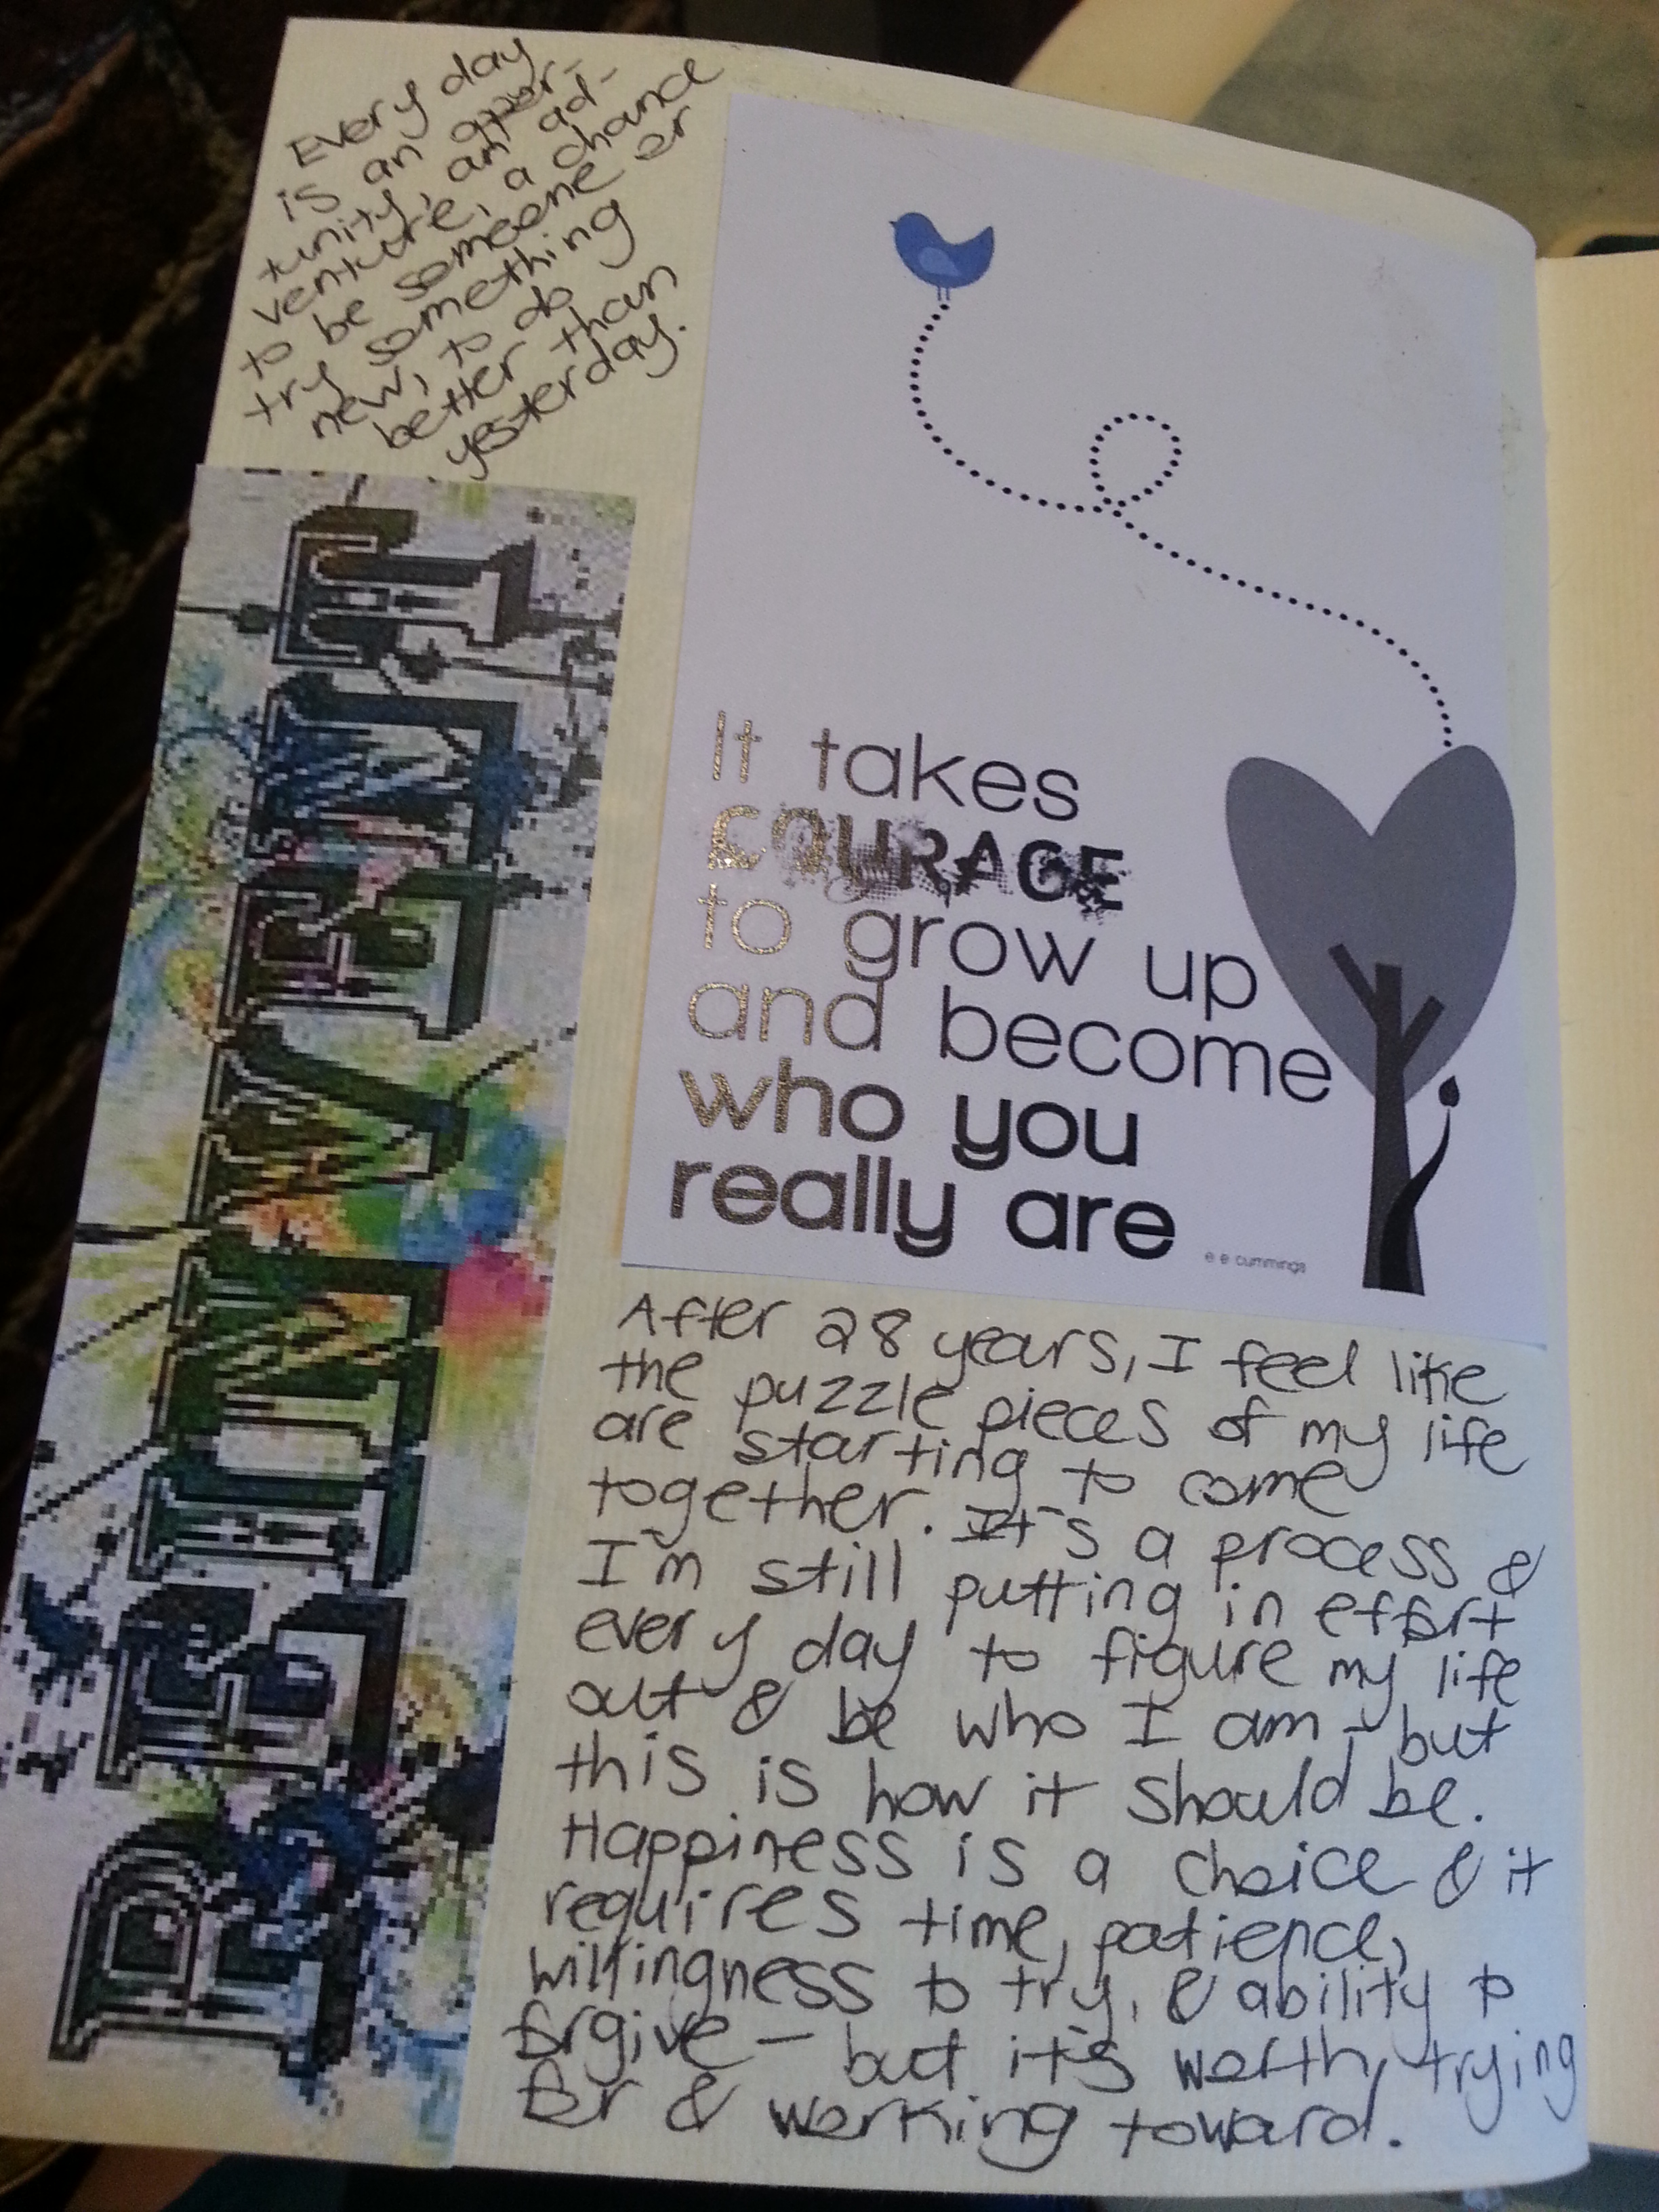 Every day
is an oppor-
tunity, an ad-
venture, a chance
to be someone or
try something
new, to do
better than
yesterday.
BEAUTIFUL
It takes
COURAGE
to grow up
and become
who you
really are
e e cummings
After 28 years, I feel like
the puzzle pieces of my life
are starting to come
together. It's a process &
I'm still putting in effort
every day to figure my life
out & be who I am - but
this is how it should be.
Happiness is a choice & it
requires time, patience,
willingness to try, & ability to
forgive - but it's worth trying
for & working toward.